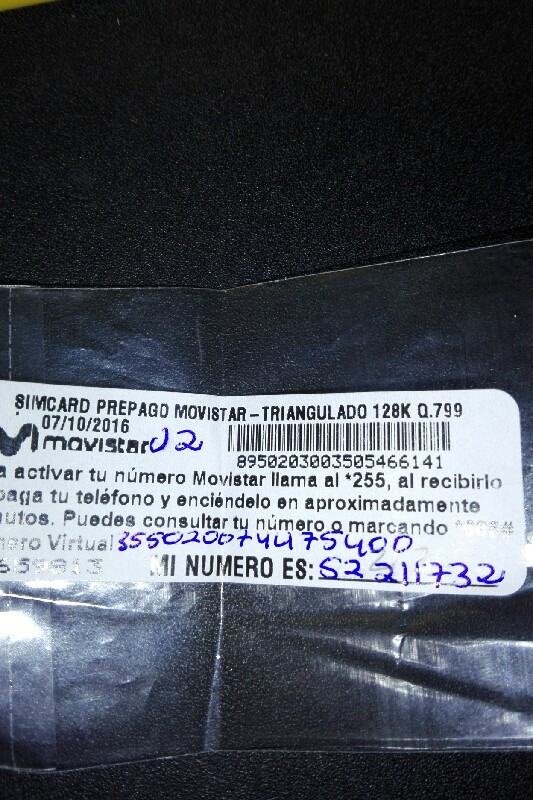 SIMCARD PREPAGO MOVISTAR-TRIANGULADO 128K Q.799
07/10/2016
movistar J2
8950203003505466141
a activar tu número Movistar llama al *255, al recibirlo
paga tu teléfono y enciéndelo en aproximadamente
nutos. Puedes consultar tu número o marcando
mero Virtual 355020074475400
MI NUMERO ES: 52211732